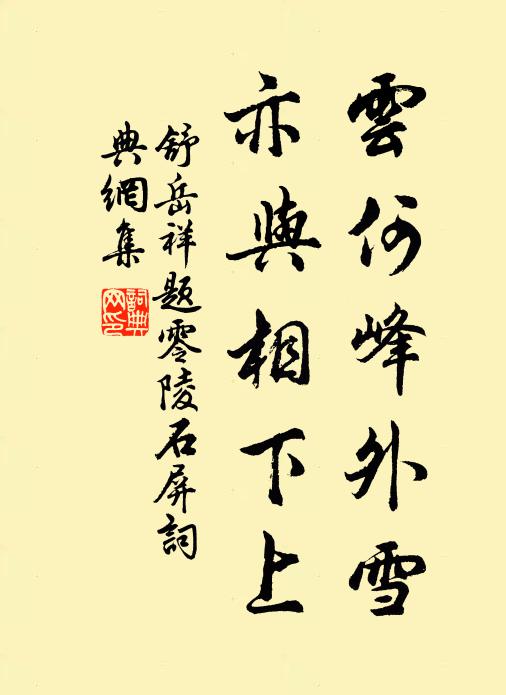 雲何峰外雪
亦與相下上
舒岳祥題零陵石屏詞
典網集
詞典
网印